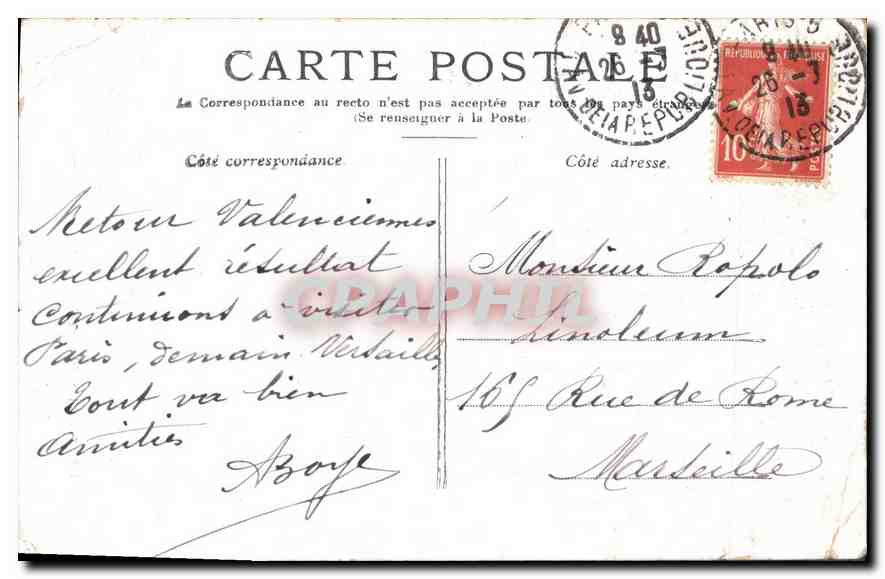 CARTE POSTALE
La Correspondance au recto n'est pas acceptée par tous les pays étrangers
(Se renseigner à la Poste.
Côté correspondance.
Côté adresse.
RÉPUBLIQUE FRANÇAISE
10
PARIS
8 40
26 - 7
13
AV. DE LA REPUBLIQUE
8 40
26 - 7
13
AV. DE LA REPUBLIQUE
Retour Valenciennes
excellent résultat
Continuons à visiter
Paris, demain Versailles
Tout va bien
Amitiés
ABoye
Monsieur Ropolo
Linoleum
165 Rue de Rome
Marseille
CPAPHIL